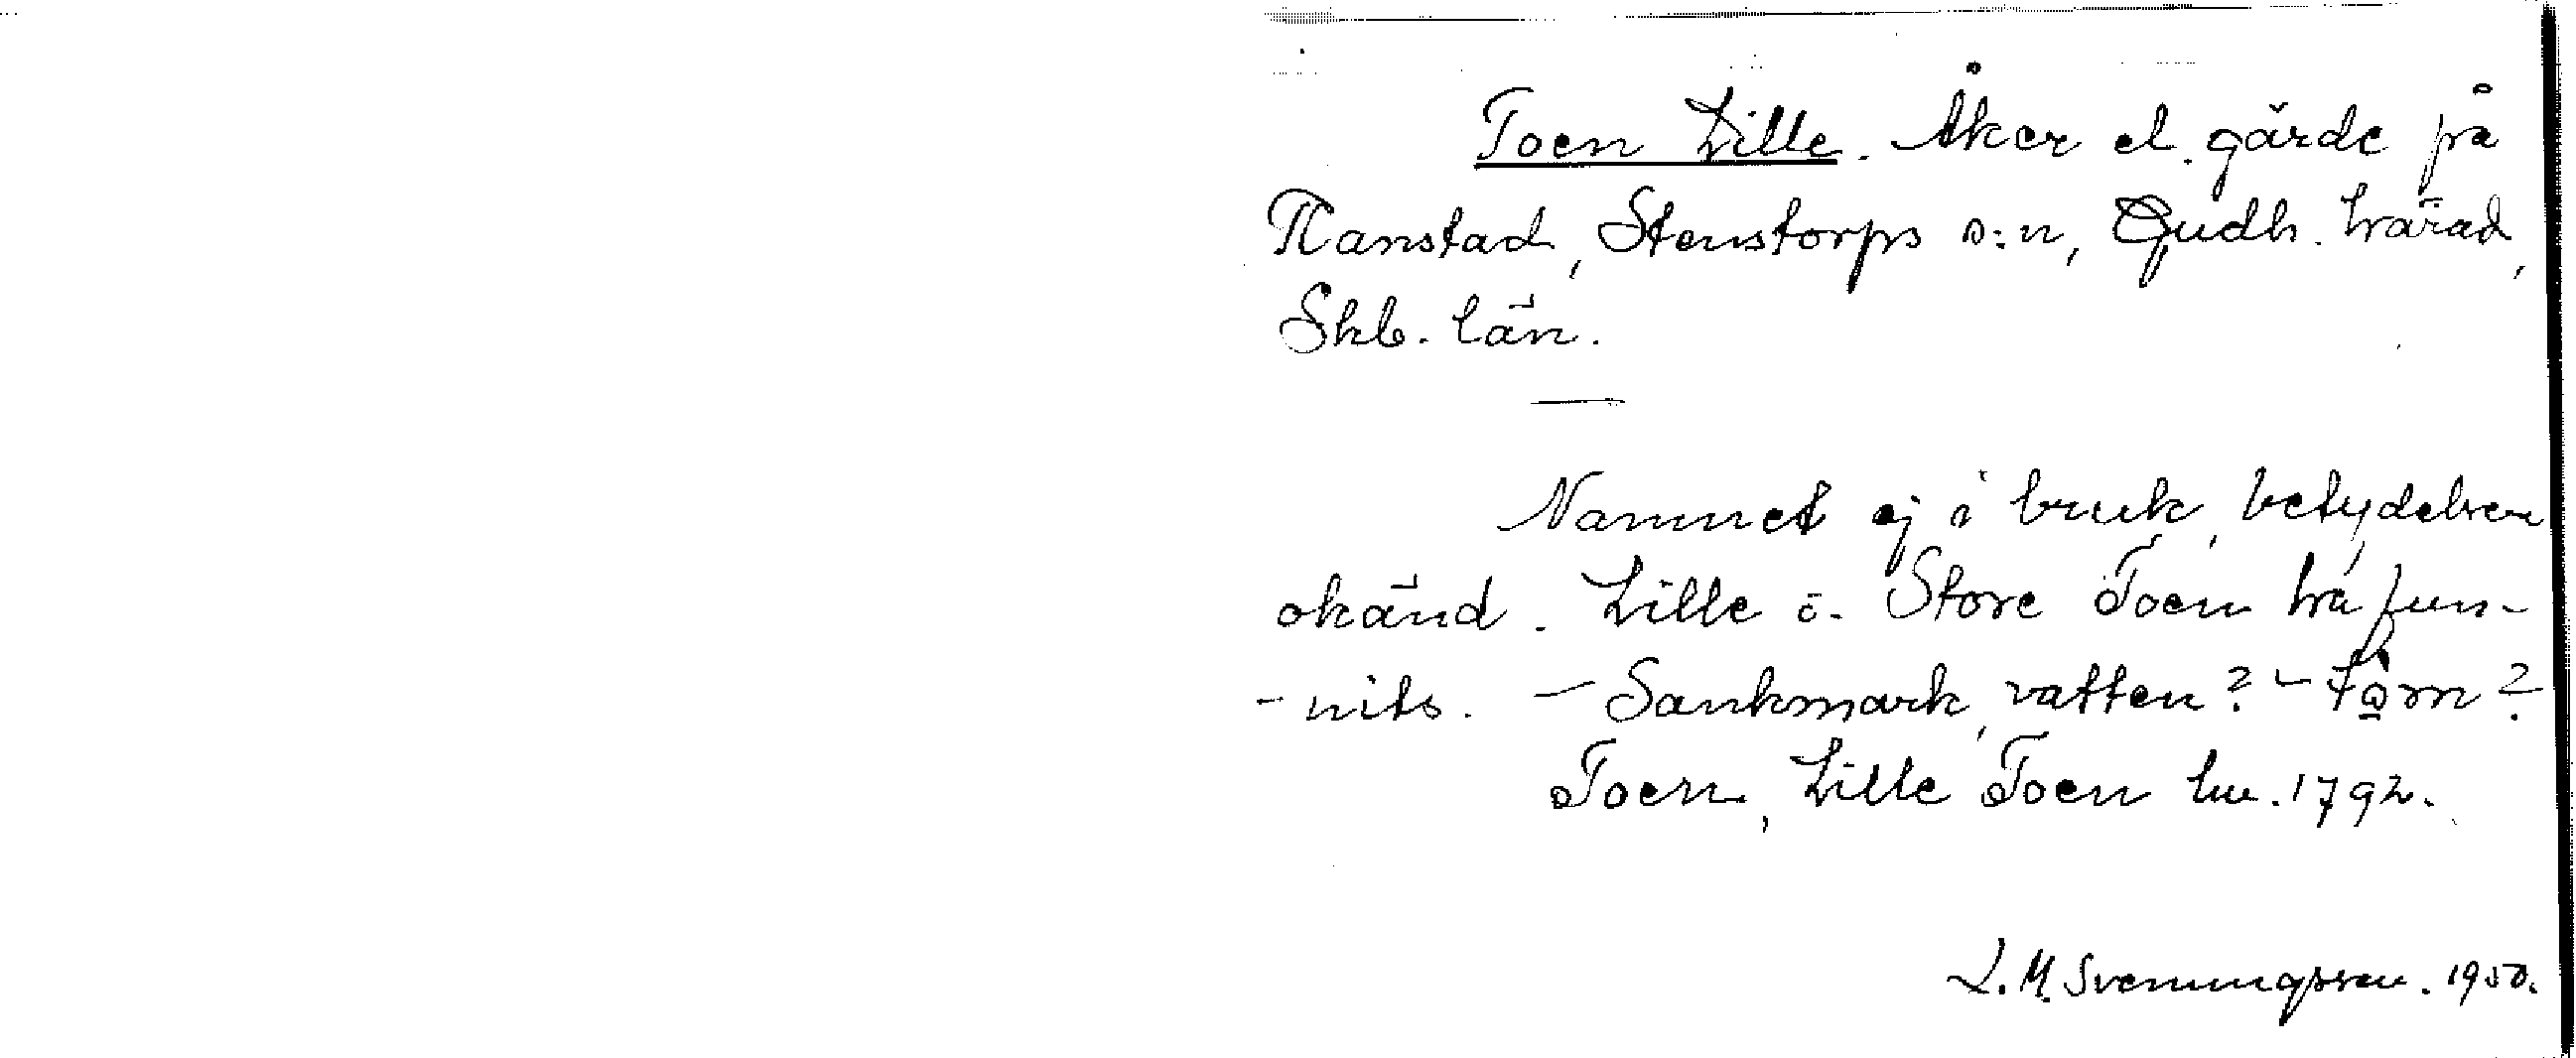 Toen Lille. Åker el. gärde på
Ranstad, Stenstorps s:n, Gudh. härad,
Skb. län.
Namnet ej i bruk, betydelsen
okänd. Lille o. Store Toen ha fun-
-nits. - Sankmark, vatten? -
Toen, Lille Toen lm. 1792.
L. M. Svenungsson. 1950.